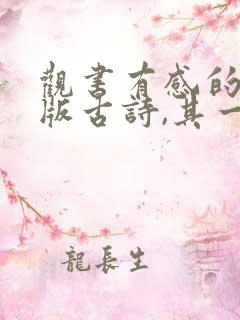 觀書有感的
版古詩,其一
龍長生